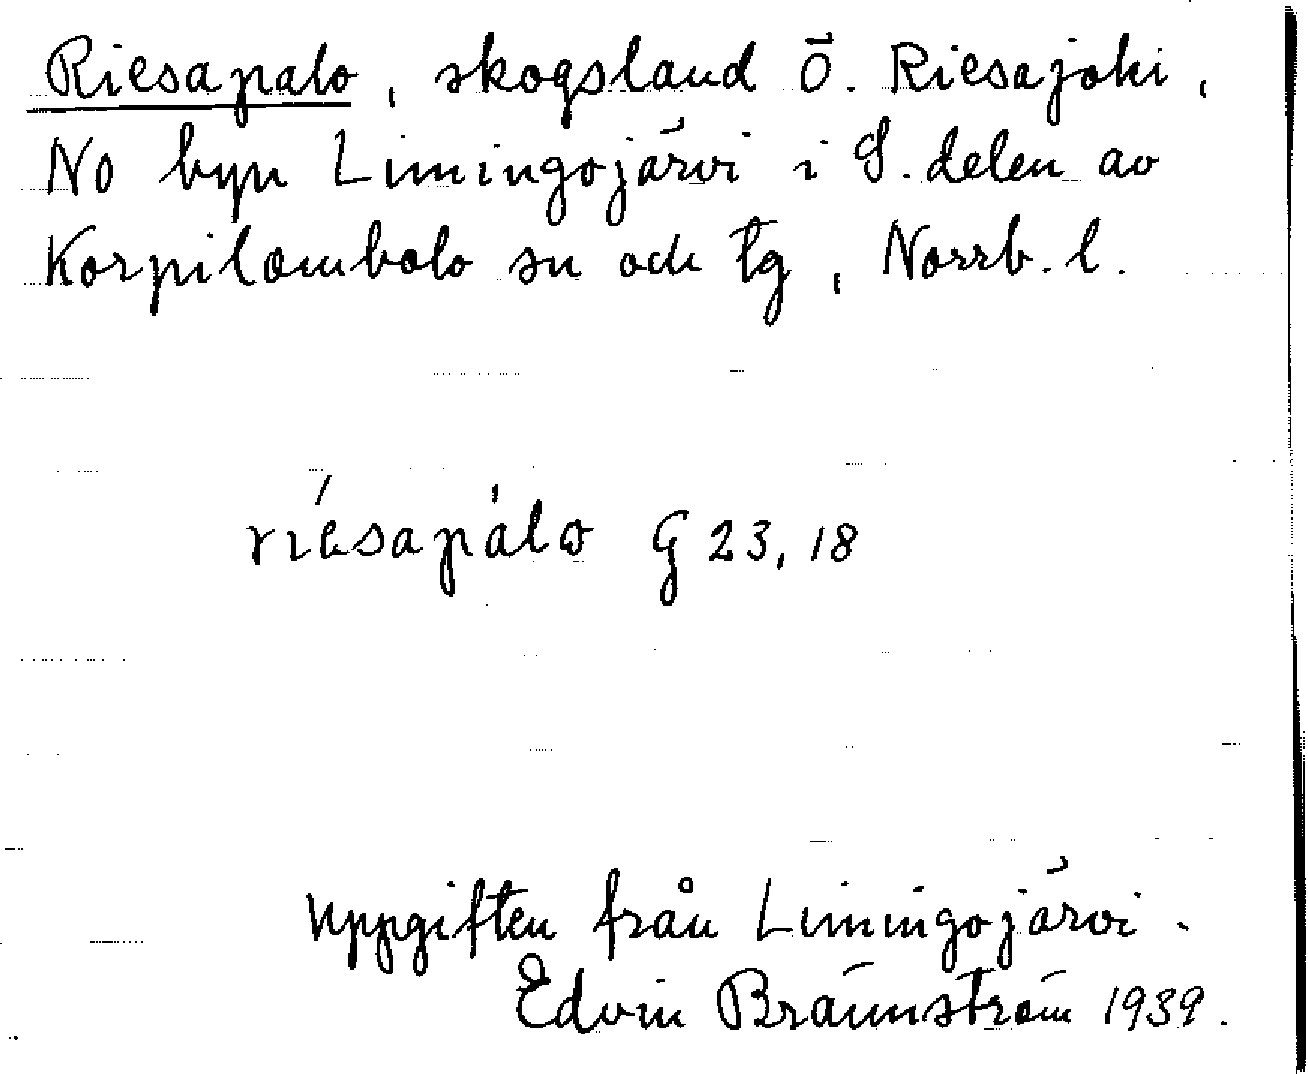 Riesapalo, skogsland Ö. Riesajoki,
No byn Limingojärvi i S. delen av
Korpilombolo sn och tg, Norrb. l.
ríesapàlo G 23, 18
Uppgiften från Limingojärvi.
Edvin Brännström 1939.